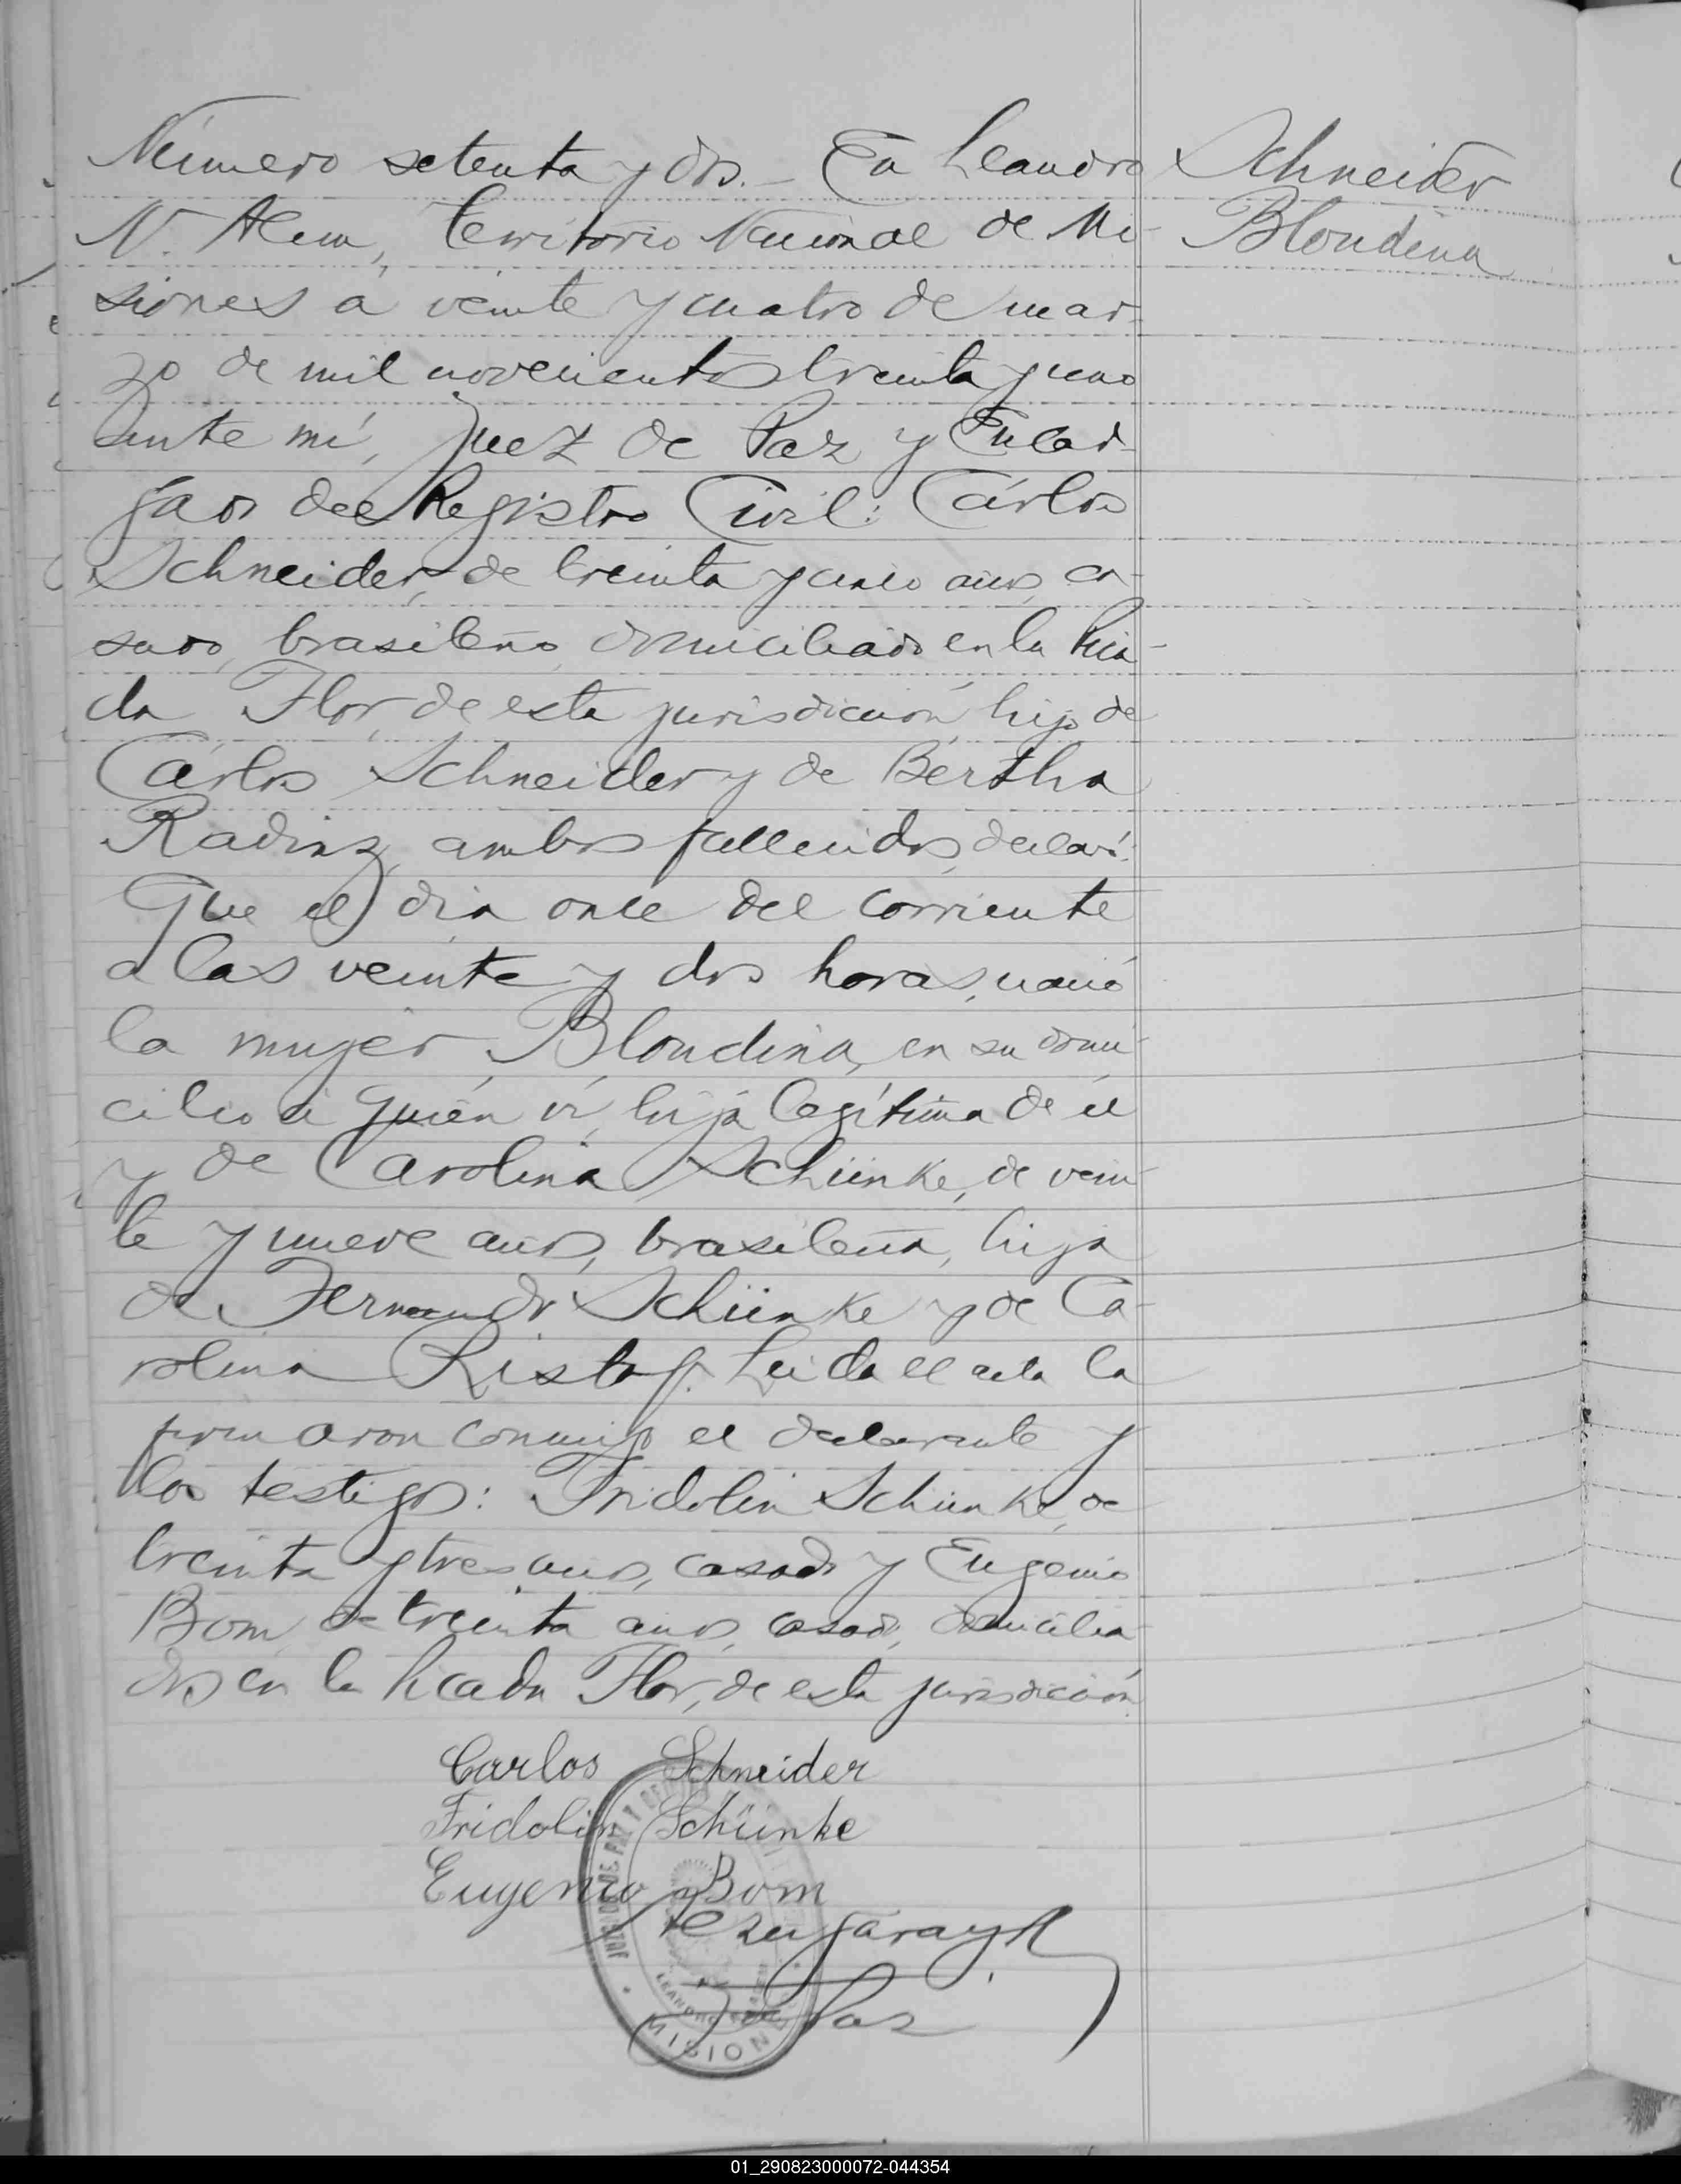 Número setenta y dos.- En Leandro
N. Alem, Territorio Nacional de Mi-
siones a veinte y cuatro de mar-
zo de mil novecientos treinta y uno
ante mí, Juez de Paz y Encar-
gado del Registro Civil: Cárlos
Schneider, de treinta y cinco años, ca-
sado, brasileño, domiciliado en la Pica-
da Flor, de esta jurisdicción, hijo de
Cárlos Schneider y de Bertha
Radinz, ambos fallecidos, declaró:
Que el día once del corriente
a las veinte y dos horas, nació
la mujer Blondina, en su domi-
cilio a quién ví, hija legítima de él
y de Carolina Schünke, de vein-
te y nueve años, brasileña, hija
de Fernando Schünke y de Ca-
rolina Ristof. Leida el acta la
firmaron conmigo el declarante y
los testigos: Fridolin Schünke, de
treinta y tres años, casado y Eugenio
Bom, de treinta años, casado, domicilia-
dos en la Picada Flor, de esta jurisdicción.
Schneider
Blondina
Carlos Schneider
Fridolin Schünke
Eugenio Bom
J. de Paz
JUZGADO DE PAZ Y
LEANDRO
MISIONES
01_290823000072-044354